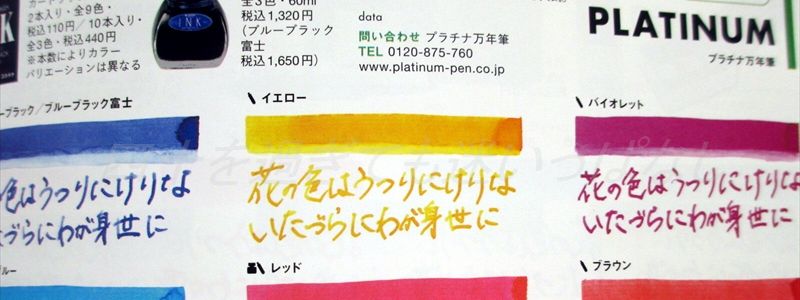 カート
2本入り・全9色・
税込110円／10本入り・
全3色・税込440円
※本数によりカラー
バリエーションは異なる
INK
全3色・60ml
税込1,320円
(ブルーブラック
富士
税込1,650円)
data
問い合わせ プラチナ万年筆
TEL 0120-875-760
www.platinum-pen.co.jp
PLATINUM
プラチナ万年筆
ーブラック／ブルーブラック富士
色はうつりにけりなよ
たづらにわが身世に
イエロー
花の色はうつりにけりなよ
いたづらにわが身世に
バイオレット
花の色はうつりにけり
いたづらにわが身世に
ブルー
レッド
ブラウン